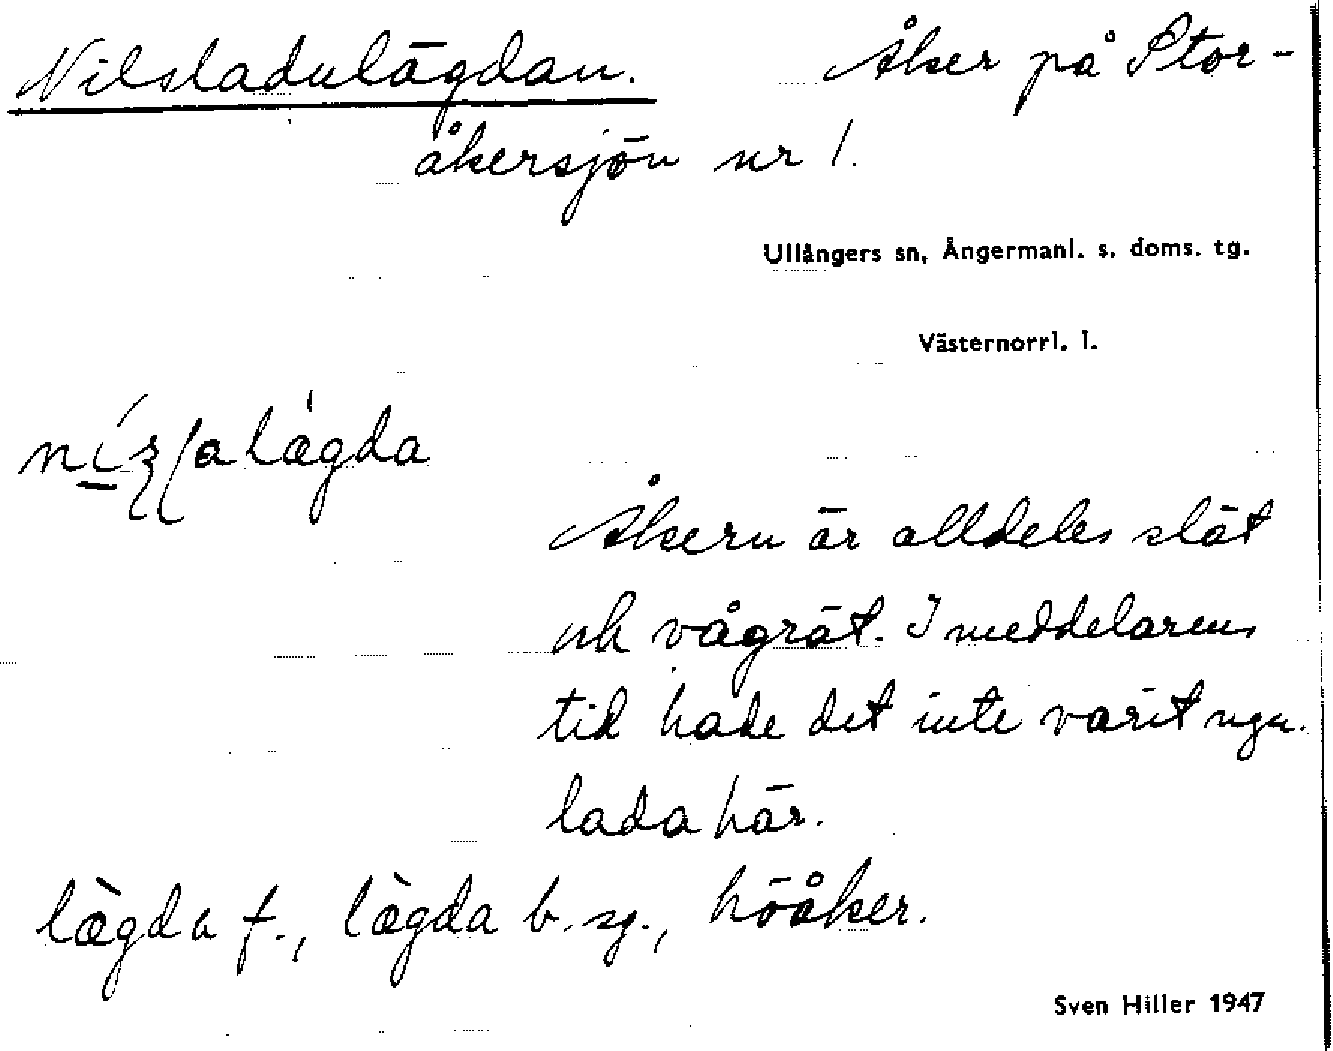 Nilsladulägdan. Åker på Stor-
åkersjön nr 1.
Ullångers sn, Ångermanl. s. doms. tg.
Västernorrl. l.
Åkern är alldeles slät
och vågrät. I meddelarens
tid hade det inte varit ngn.
lada här.
lægda f., lægda b. sg., höåker.
Sven Hiller 1947